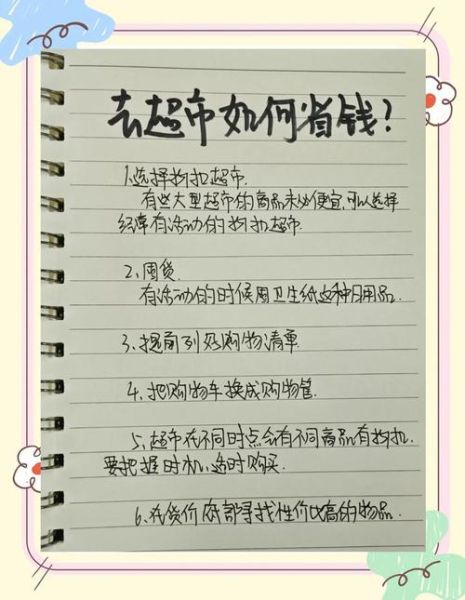 去超市如何省钱?
1.选择折扣超市.
有些大型超市的商品未必便宜,可以选择
经常有活动的折扣超市.
2.囤货.
有活动的时候囤卫生纸这种日用品.
3.提前列好购物清单
4.把购物车换成购物篮.
5.超市在不同时点会有不同商品有折扣.
要把握时机,适时购买.
6.在货价底部寻找性价比高的物品.